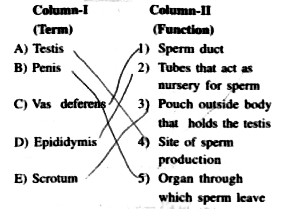 Column-I Column-II
(Term) (Function)
A) Testis 1) Sperm duct
B) Penis 2) Tubes that act as
nursery for sperm
C) Vas deferens 3) Pouch outside body
that holds the testis
D) Epididymis 4) Site of sperm
production
E) Scrotum 5) Organ through
which sperm leave